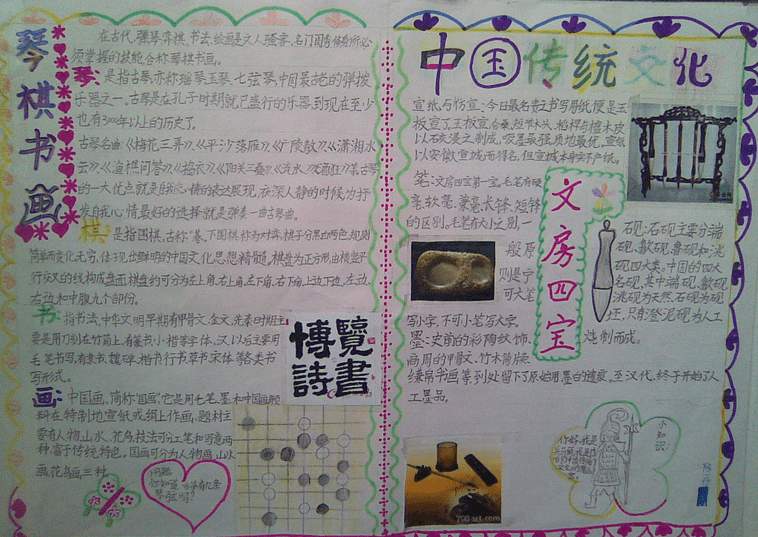 琴棋书画
在古代,弹琴、弈棋、书法、绘画是文人骚客、名门闺秀修身所必
须掌握的技能合称琴棋书画。
琴:是指古琴,亦称瑶琴、玉琴、七弦琴,中国最古老的弹拨
乐器之一。古琴是在孔子时期就已盛行的乐器,到现在至少
也有3000年以上的历史了。
古琴名曲《梅花三弄》《平沙落雁》《广陵散》《潇湘水
云》《渔樵问答》《捣衣》《阳关三叠》《流水》《酒狂》
的一大优点就是自我心情的表达展现,夜深人静的时候,为抒
发自我心情最好的选择就是弹奏一曲古琴曲。
棋:是指围棋,古称
简单而变化无穷,体现出鲜明的中国文化思想精髓,棋盘为正方形,由横竖平
行交叉的线构成,盘面棋盘约可分为左上角、右上角、左下角、右下角、上边、下边、左边、
右边和中腹九个部份。
书:指书法,中华文明早期有甲骨文、金文,先秦时期主
要是用刀刻在竹简上,有篆书、小楷等字体,又以后主要用
毛笔书写,有隶书、魏碑、楷书、行书、草书、宋体等各类书
写形式。
博覽
詩書
画:中国画,简称"国画",它是用毛笔、墨和中国画颜
料在特制地宣纸或绢上作画,题材主
要有人物、山水、花鸟,技法可分工笔和写意两
种,富于传统特色,国画可分为人物画、山水
画、花鸟画三种
问题
你知道古琴有几条
琴弦吗?
中国传统文化
宣纸与仿宣:今日最名贵之书写用纸便是玉
板宣了,玉板宣合桑、短节木头、稻杆与檀木皮
以石灰浸之制成,吸墨最强,质地最优,宣纸
以安徽宣城而得名,但宣城本身实不产纸。
笔:文房四宝第一宝,毛笔有硬
毫、软毫、兼毫、长锋、短锋
的区别。毛笔有大小之别,一
般原
则是宁
可大笔
写小字,不可小笔写大字。
文房四宝
砚:石砚主要分端
砚、歙砚、鲁砚和洮
砚四大类。中国的四大
名砚,其中端砚、歙砚、
洮砚为天然石砚为砚
坯,只有澄泥砚为人工
炼制而成。
墨:史前的彩陶纹饰、
商周的甲骨文、竹木简牍、
缣帛书画等到处留下了原始用墨的遗痕。至汉代,终于开始了人
工墨品。
小知识:
你好,我是